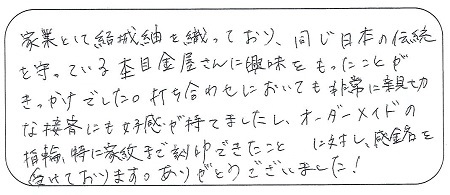 家業として結城紬を織っており、同じ日本の伝統
を守っている杢目金屋さんに興味をもったことが
きっかけでした。打ち合わせにおいても非常に親切
な接客にも好感が持てましたし、オーダーメイドの
指輪、特に家紋まで刻印できたこと に対し、感銘を
受けております。ありがとうございました!